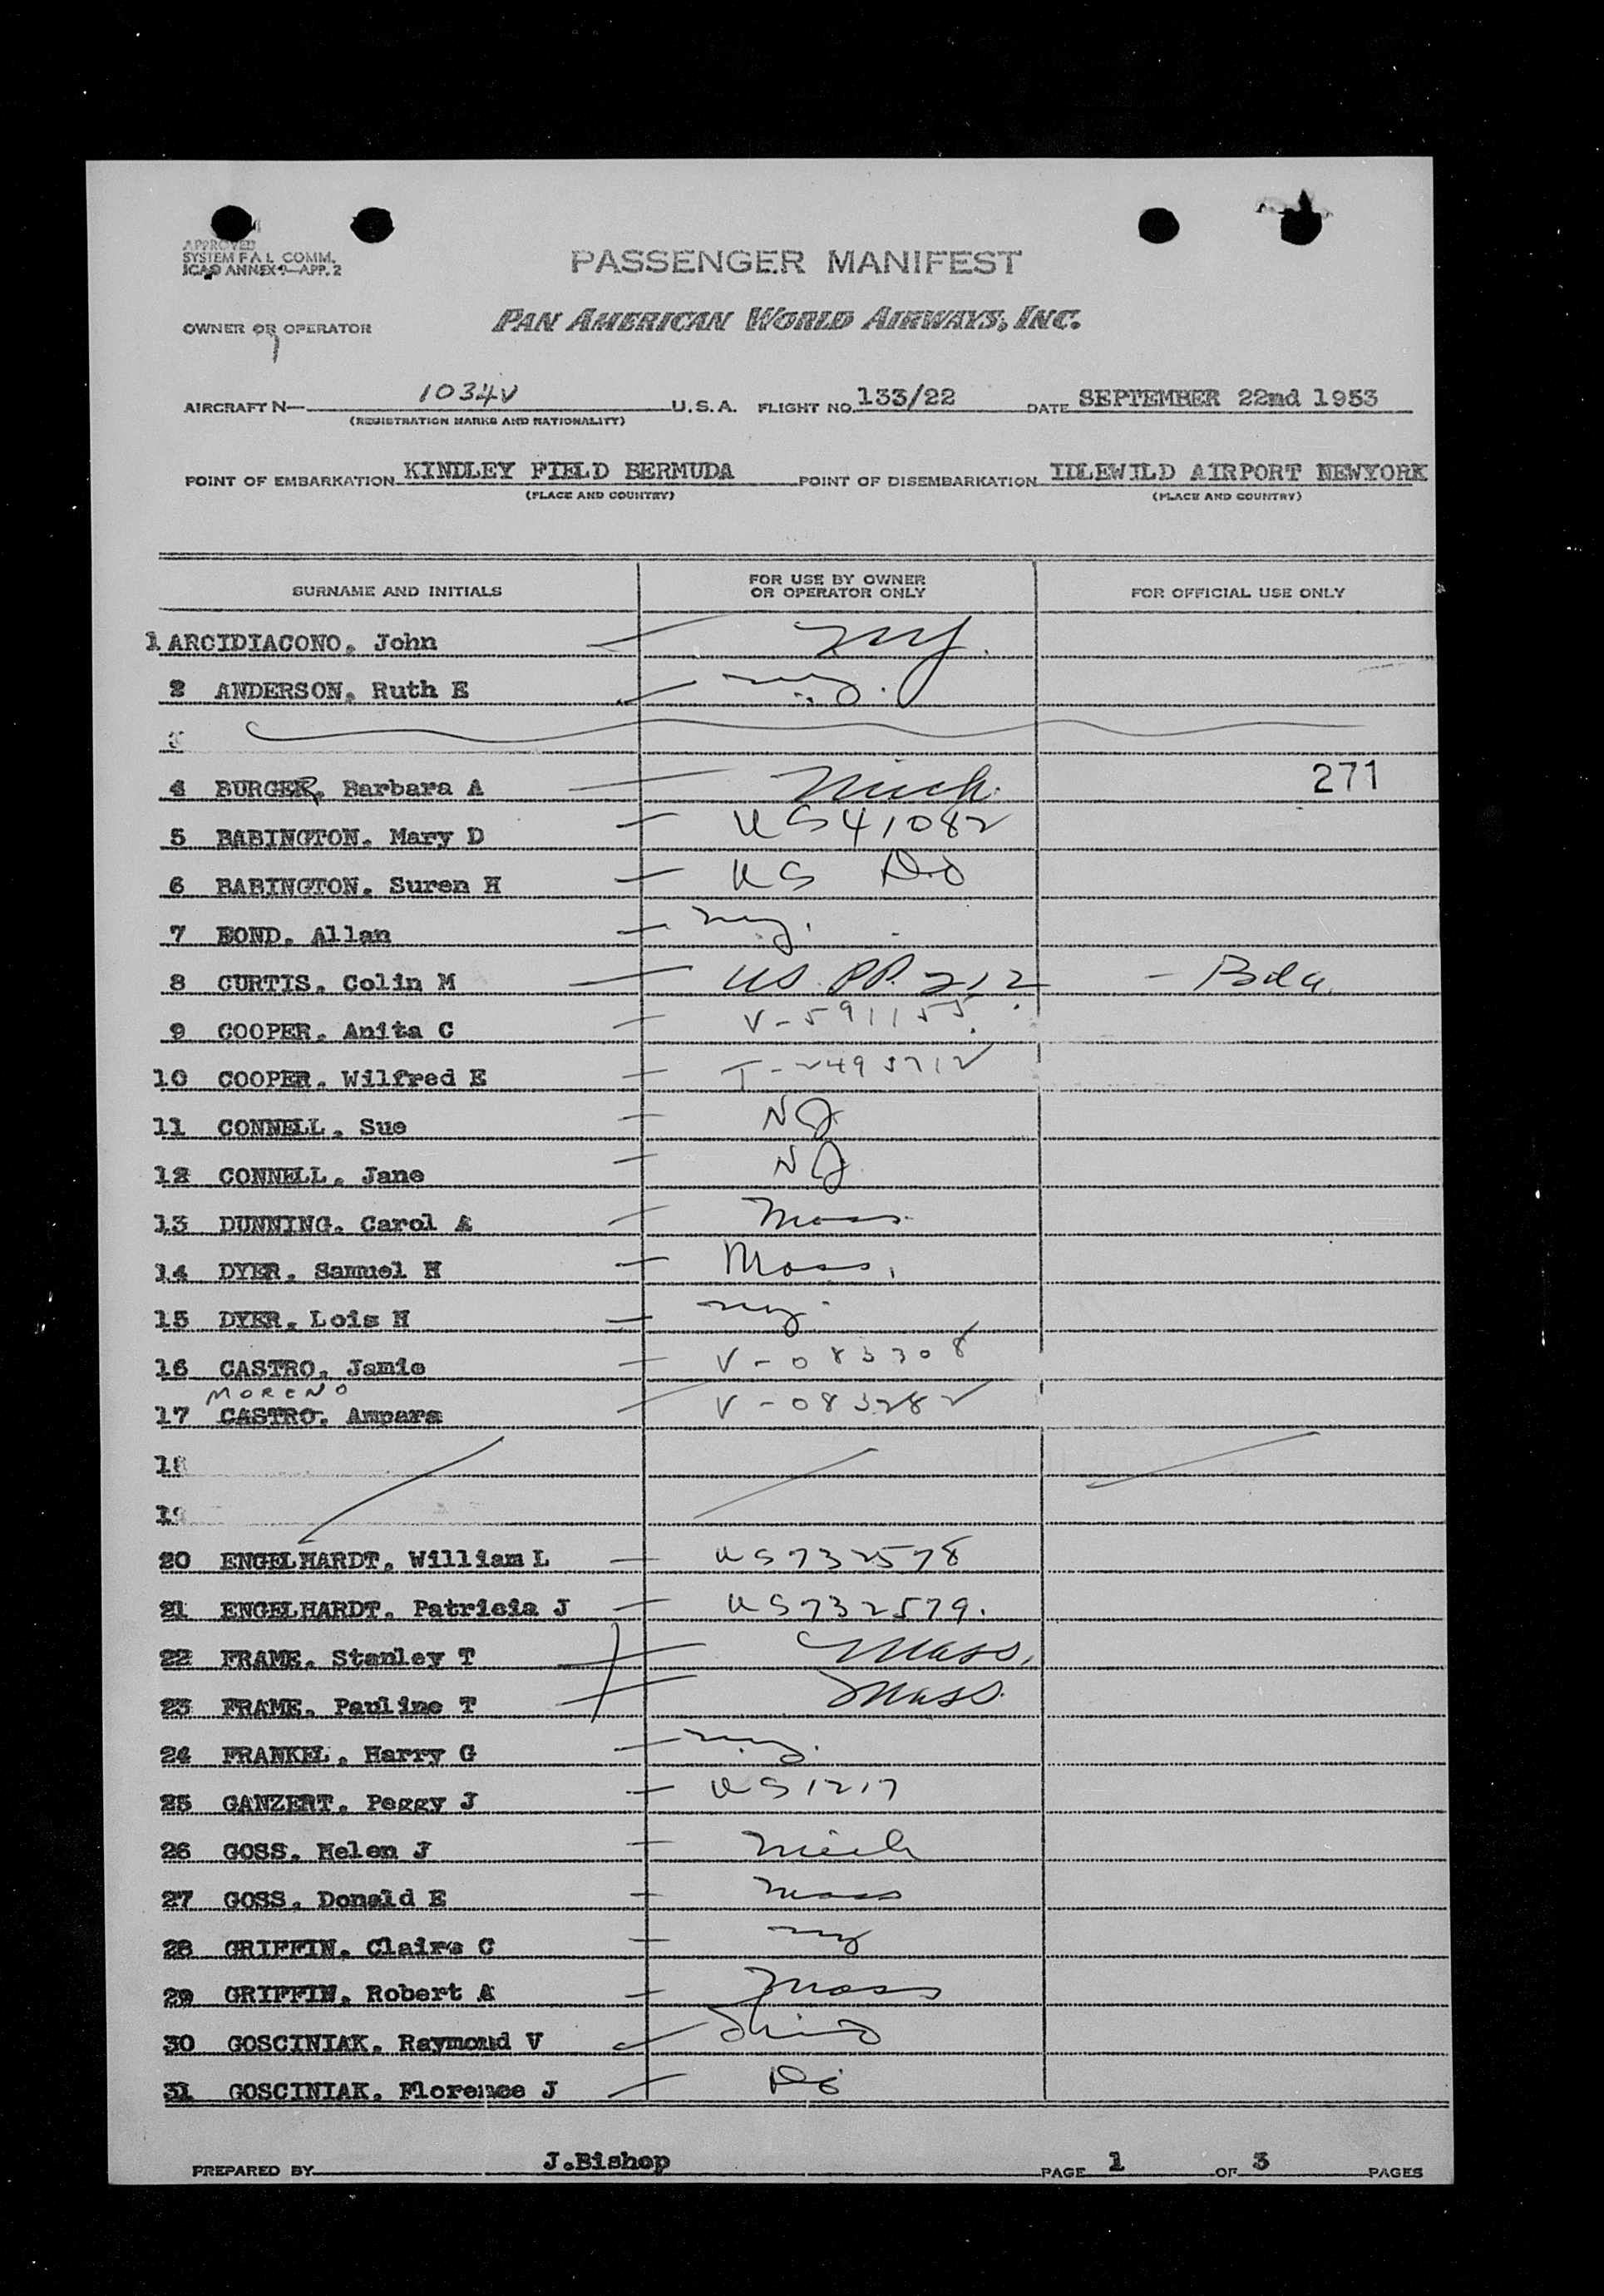 APPROVED
SYSTEM F A L COMM.
ICAO ANNEX 9—APP. 2
PASSENGER MANIFEST
OWNER OR OPERATOR PAN AMERICAN WORLD AIRWAYS, INC.
AIRCRAFT N— 1034V U.S.A. FLIGHT NO. 133/22 DATE SEPTEMBER 22nd 1953
(REGISTRATION MARKS AND NATIONALITY)
POINT OF EMBARKATION KINDLEY FIELD BERMUDA POINT OF DISEMBARKATION IDLEWILD AIRPORT NEWYORK
(PLACE AND COUNTRY) (PLACE AND COUNTRY)
SURNAME AND INITIALS FOR USE BY OWNER OR OPERATOR ONLY FOR OFFICIAL USE ONLY
1 ARCIDIACONO. John NY.
2 ANDERSON. Ruth E NY.
3
4 BURGER. Barbara A Mich. 271
5 BABINGTON. Mary D US 41082
6 BABINGTON. Suren H US Do
7 BOND. Allan NY.
8 CURTIS. Colin M US. PP. 212 - Bda.
9 COOPER. Anita C V-591155.
10 COOPER. Wilfred E
11 CONNELL. Sue NJ
12 CONNELL. Jane NJ
13 DUNNING. Carol A Mass.
14 DYER. Samuel H Mass.
15 DYER. Lois H NY.
16 CASTRO. Jamie V-083308
MORENO
17 CASTRO. Ampara V-083282
18
19
20 ENGELHARDT. William L US732578
21 ENGELHARDT. Patricia J US732579.
22 FRAME. Stanley T Mass.
23 FRAME. Pauline T Mass.
24 FRANKEL. Harry G NY.
25 GANZERT. Peggy J US1217
26 GOSS. Helen J Mich
27 GOSS. Donald E Mass
28 GRIFFIN. Claire C NY
29 GRIFFIN. Robert A Mass
30 GOSCINIAK. Raymond V Ohio
31 GOSCINIAK. Florence J Do
PREPARED BY J.Bishop PAGE 1 OF 3 PAGES